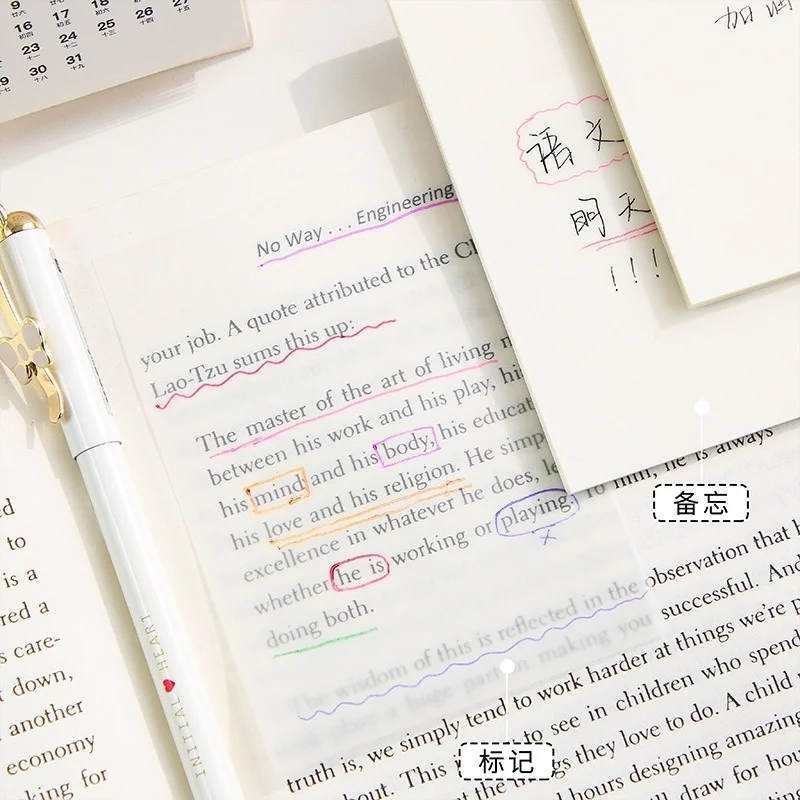 9
16 17 18
廿六 廿七
25 26 27
初四 初五
十三
23 24
十一 十二
30 31
十八 十九
加油
语文
明天
!!!
No Way . . . Engineering
your job. A quote attributed to the
Lao-Tzu sums this up:
The master of the art of living
between his work and his play,
his mind and his body, his
his love and his religion. He
excellence in whatever he does,
whether he is working or playing. To him, he is always
doing both.
The wisdom of this is reflected in the observation that
making you successful. And
truth is, we simply tend to work harder at things we're
about. This to see in children who spend
at the things they love to do. A child
hours designing amazing
draw for
备忘
标记
to
is a
care-
down,
another
economy
for
INITIAL HEART